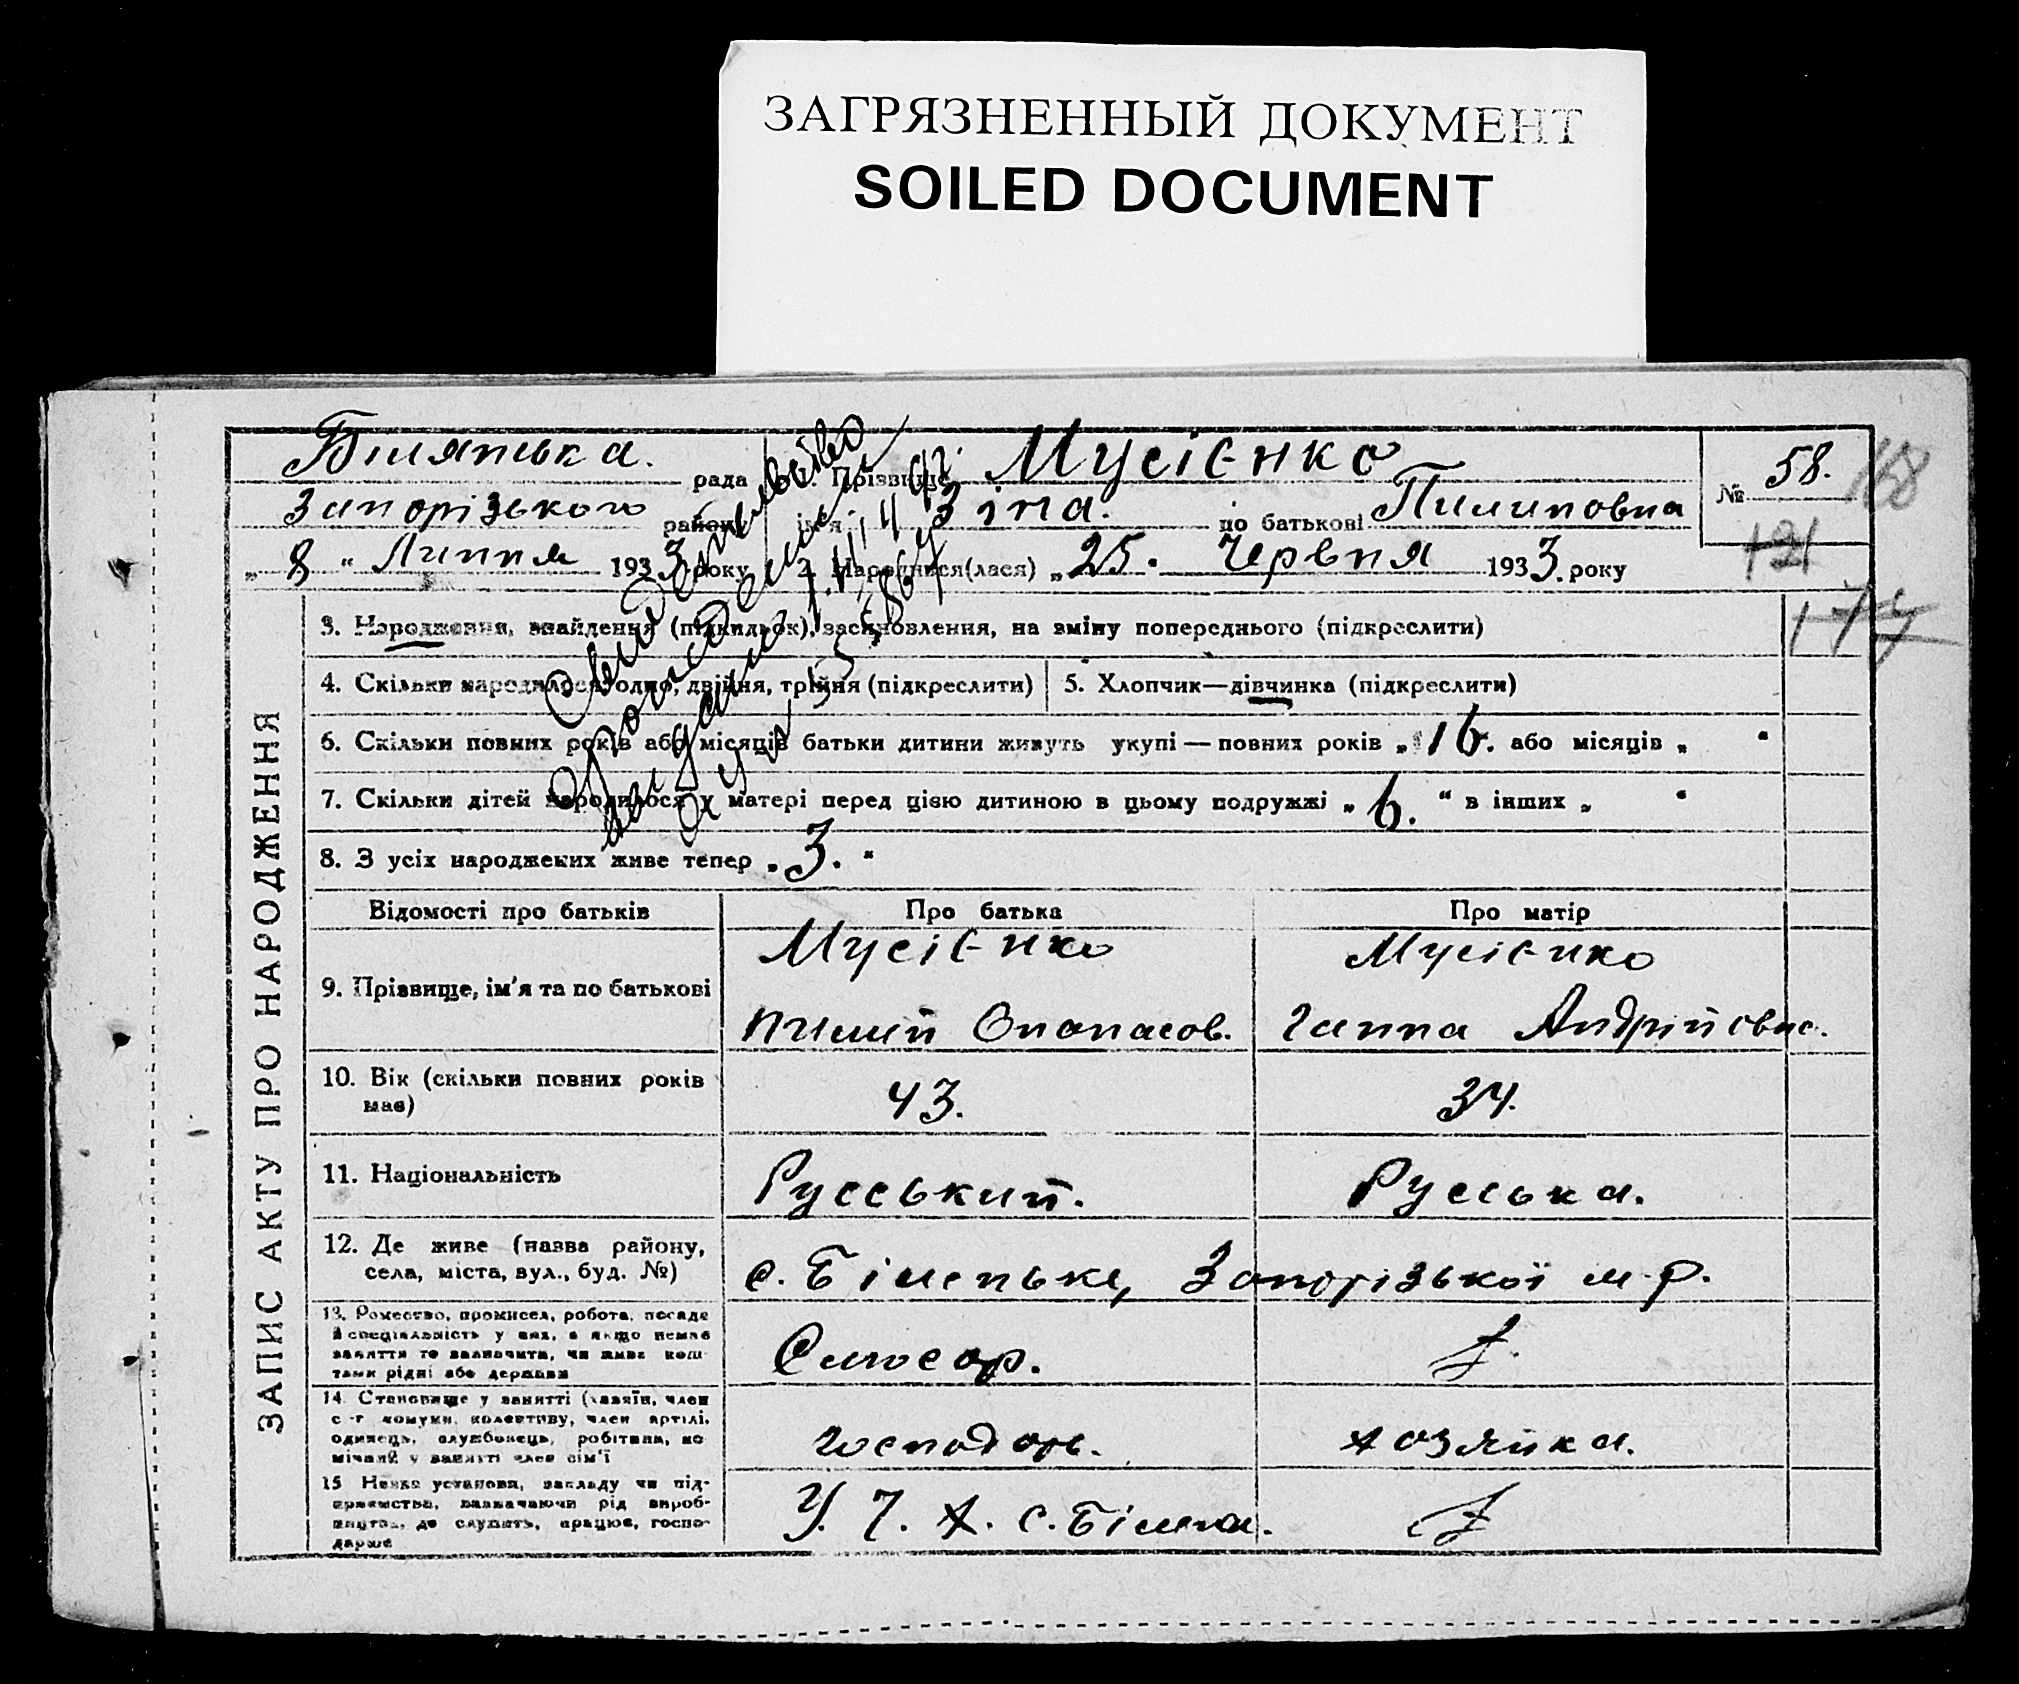 ЗАГРЯЗНЕННЫЙ ДОКУМЕНТ
SOILED DOCUMENT
рада 1. Прізвище Мусієнко № 58.
Запорізького району ім'я Зіна. по батькові Пилиповна
121
„ 8 “ Липня 1933 року 2. Народився(лася) „ 25. Червня 1933. року
174
Свидетельство
о рождении
выдано
ЗАПИС АКТУ ПРО НАРОДЖЕННЯ
3. Народження, знайдення (підкидьок), засиновлення, на зміну попереднього (підкреслити)
4. Скільки народилося: одно, двійня, трійня (підкреслити) 5. Хлопчик—дівчинка (підкреслити)
6. Скільки повних років або місяців батьки дитини живуть укупі — повних років „ 16. або місяців „ “
7. Скільки дітей народилося у матері перед цією дитиною в цьому подружжі „ 6. “ в інших „ “
8. З усіх народжених живе тепер „ 3. “
Відомості про батьків Про батька Про матір
9. Прізвище, ім'я та по батькові Мусієнко Мусієнко
Пилип Опанасов. Ганна Андрійовна.
10. Вік (скільки повних років має) 43. 34.
11. Національність Русський. Руська.
12. Де живе (назва району, села, міста, вул., буд. №) с. Біленьке, Запорізької м. р.
13. Ремество, промисел, робота, посада
й спеціальність у них, а якщо немає
заняття то зазначити, чи живе кош-
тами рідні або держави
14. Становище у занятті (хазяїн, член
с.-г. комуни, колективу, член артілі,
одинець, службовець, робітник, по-
мічний у занятті член сім'ї Господарь. Хозяйка.
15. Назва установи, закладу чи під-
приємства, зазначаючи рід вироб-
ництва, де служить, працює, госпо-
дарює